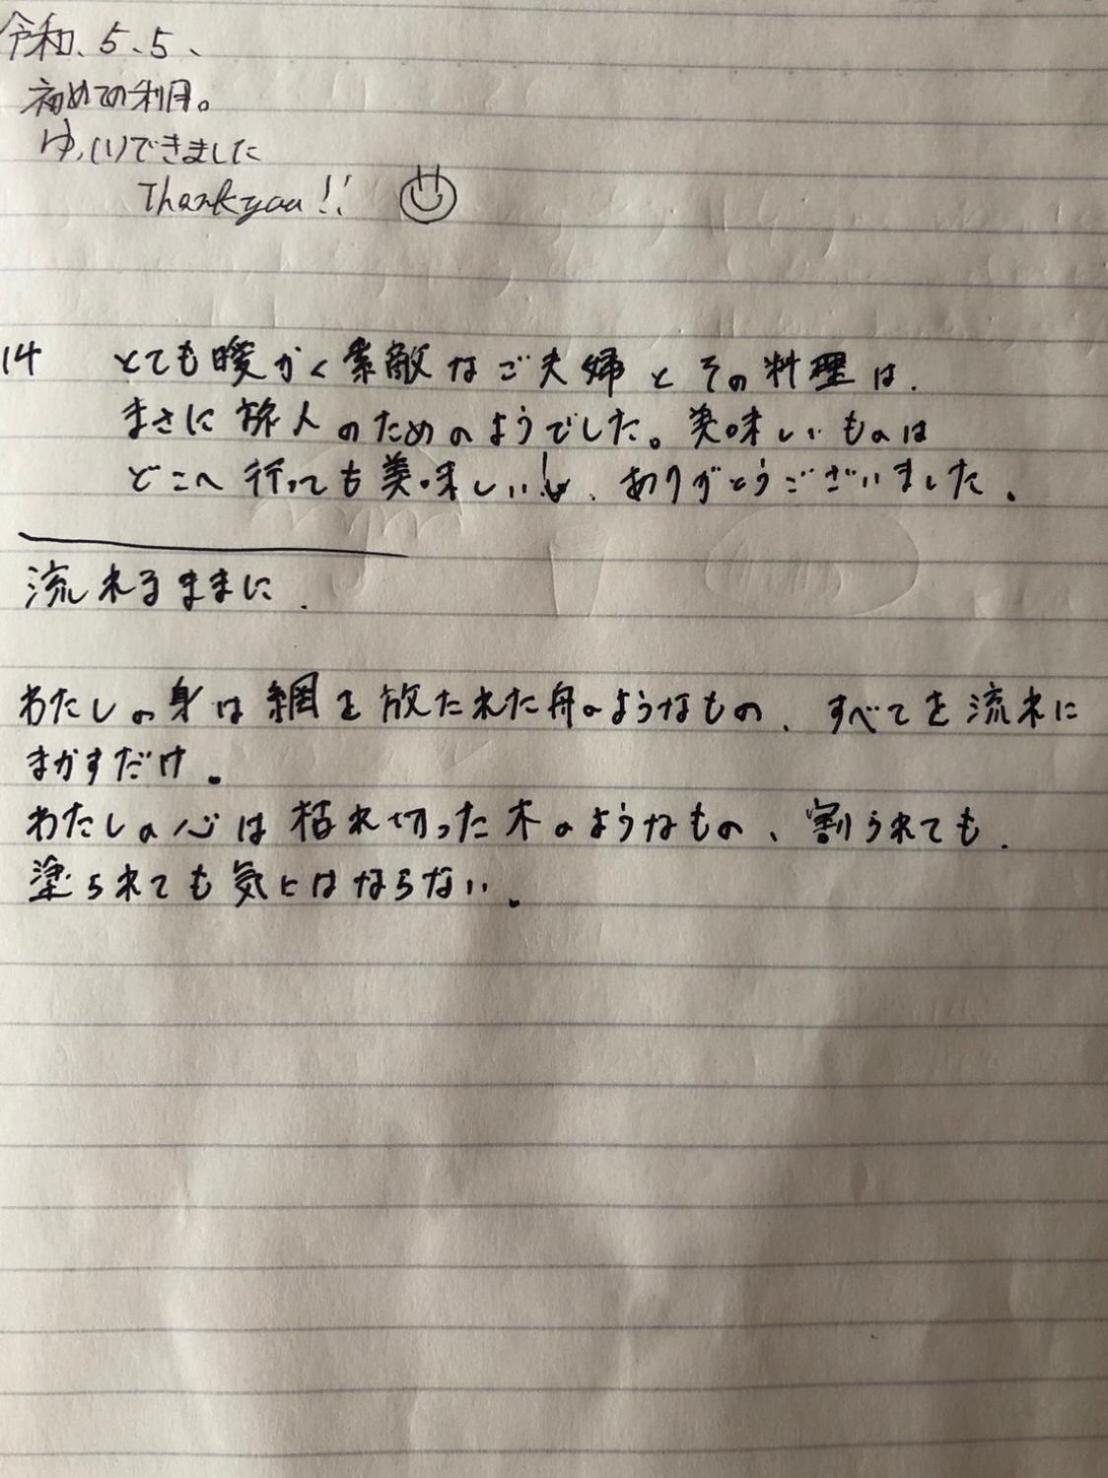 令和、5、5、
初めての利用。
ゆっくりできました
Thankyou!!
14 とても暖かく素敵なご夫婦とその料理は、
まさに旅人のためのようでした。美味しいものは
どこへ行っても美味しい!、ありがとうございました。
流れるままに、
わたしの身は綱を放たれた舟のようなもの、すべてを流れに
まかすだけ。
わたしの心は枯れ切った木のようなもの、割られても、
塗られても気にはならない。